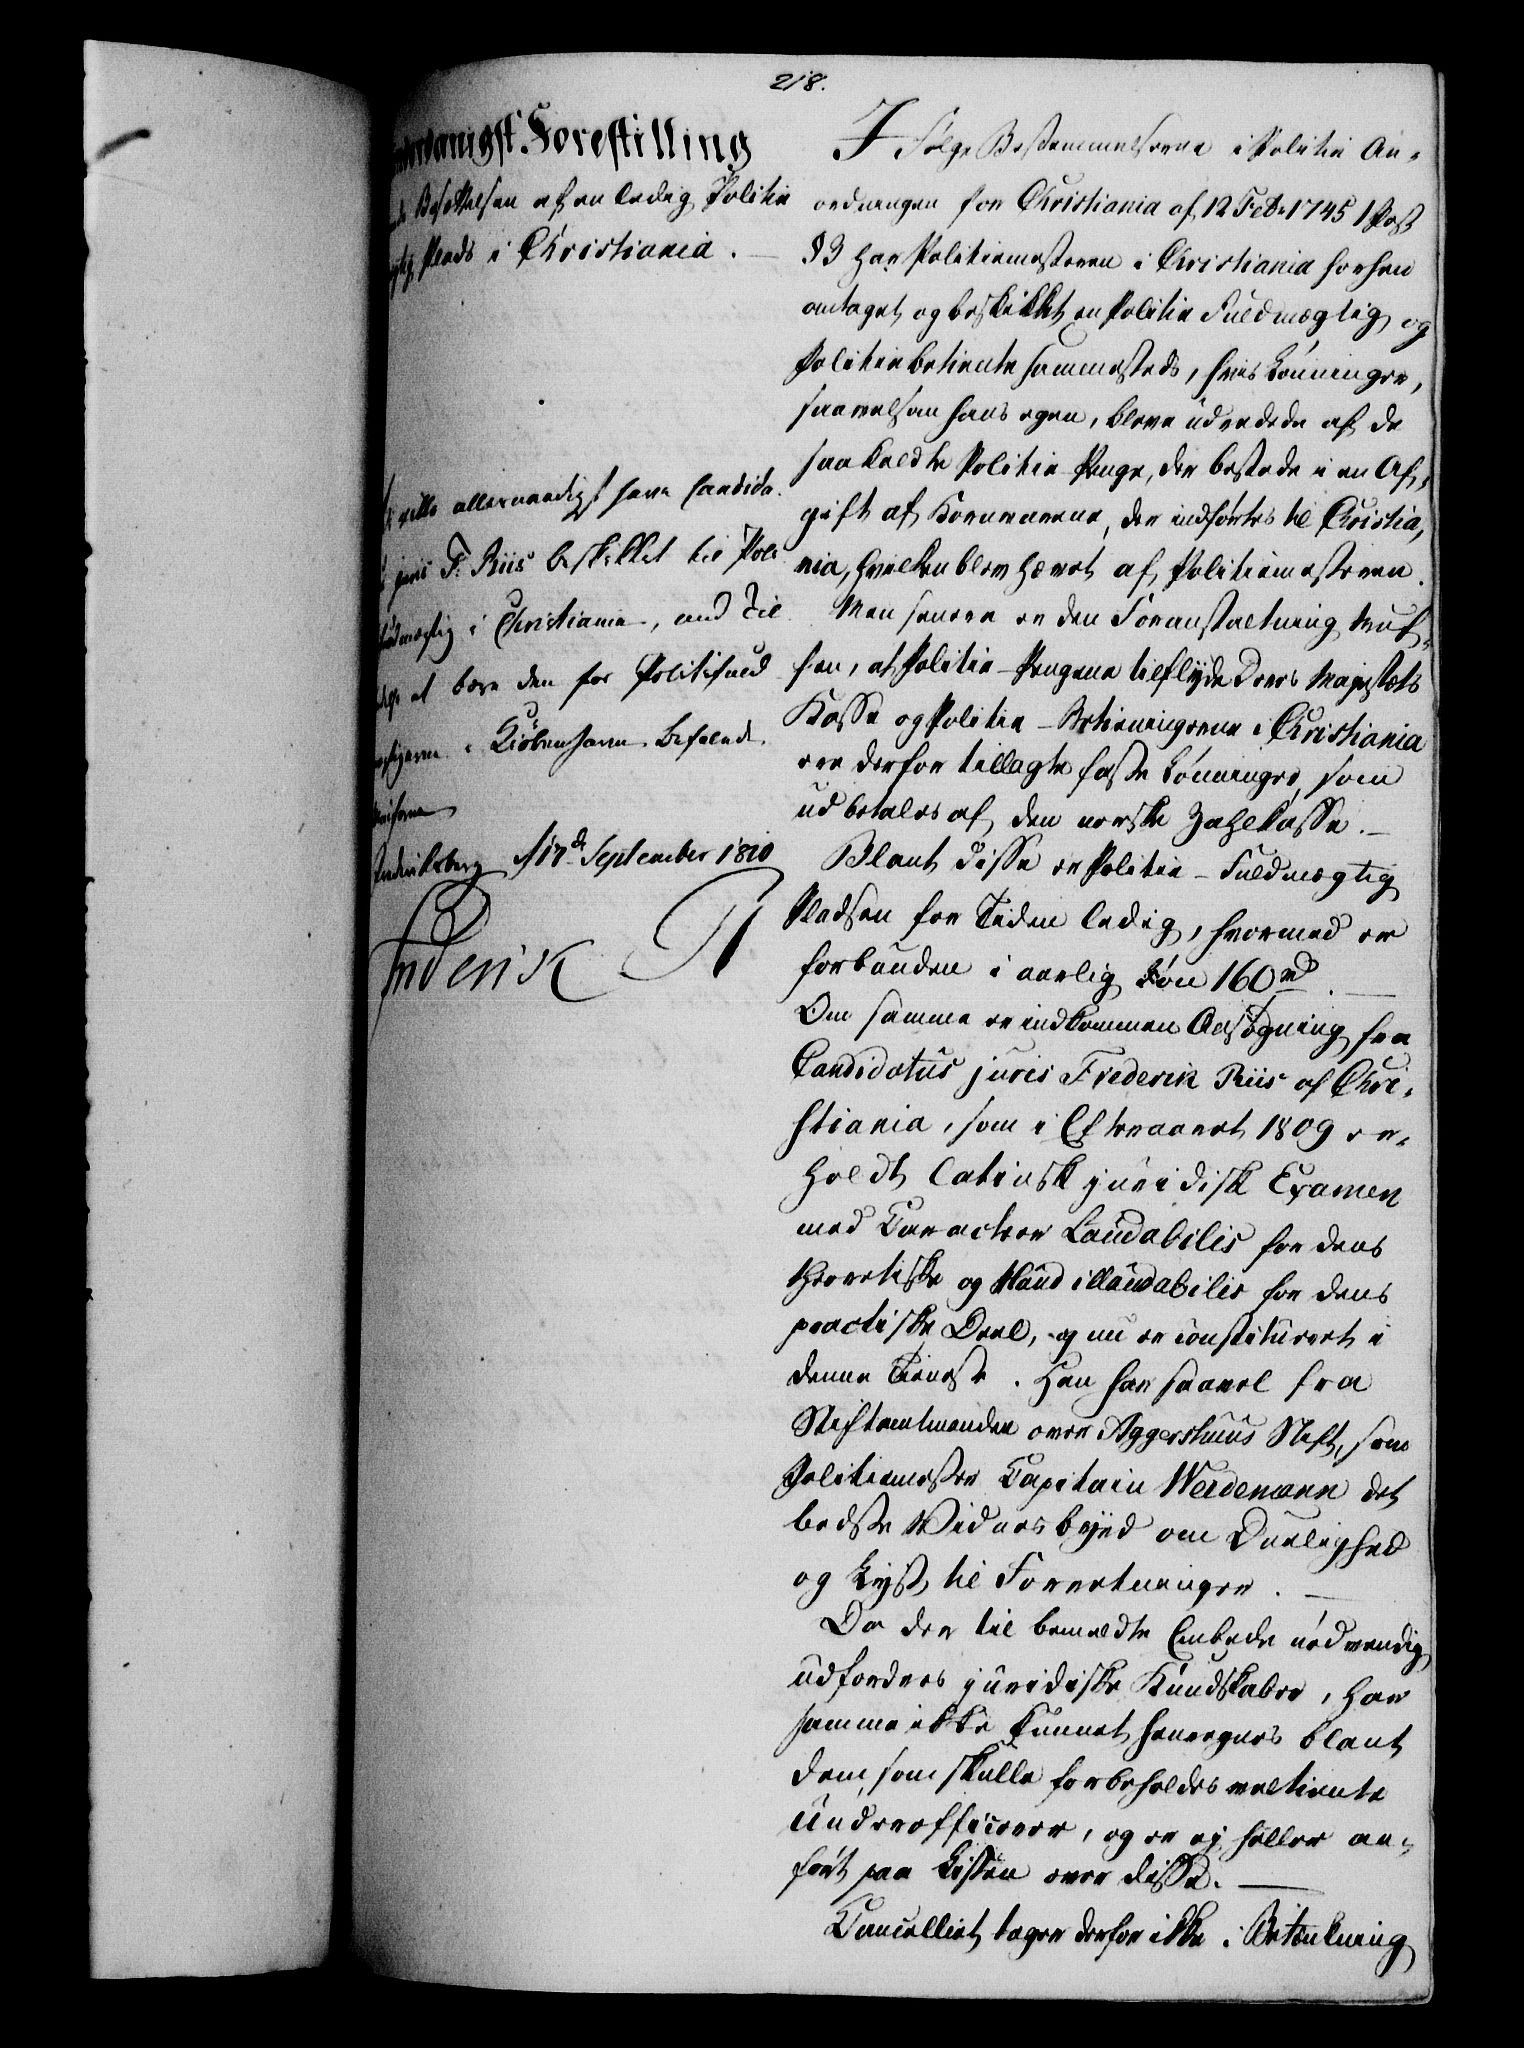 218.
Underdanigst Forestilling
Besættelsen af en ledig Politie
Plads i Christiania.
ville allernaadigst have Candida-
juris F: Riis beskikket til Poli
fuldmægtig i Christiania, med Til
at bære den for Politifuld
i Kiøbenhavn befalede
Uniform
Frederiksberg d 17d September 1810
Frederik R
I Følge Bestemmelserne i Politie An-
ordningen for Christiania af 12 Febr 1745 1 Post
§ 3 har Politiemesteren i Christiania forhen
antaget og beskikket en Politie Fuldmægtig og
Politiebetiente sammesteds, hvis Lønninger,
saavelsom hans egen, bleve udredede af de
saa kaldte Politie Penge, der bestode i en Af-
gift af Kornvarene, der indførtes til Christia-
nia, hvilken blev hævet af Politiemesteren.
Men senere er den Foranstaltning truf-
fen, at Politie-Pengene tilflyde Deres Majestæts
Kasse og Politie-Betieningerne i Christiania
ere derfor tillagte faste Lønninger, som
udbetales af den norske Zahlkasse.
Blant disse er Politie-Fuldmægtig
Pladsen for Tiden ledig, hvormed er
forbunden i aarlig Løn 160 rd.
Om samme er indkommen Ansøgning fra
Candidatus juris Frederik Riis af Chri-
stiania, som i Efteraaret 1809 er-
holdt latinsk juridisk Examen
med Caracteer Laudabilis for dens
theoretiske og Haud illaudabilis for dens
practiske Deel, og nu er constitueret i
denne Tieneste. Han har saavel fra
Stiftamtmanden over Aggershuus Stift, som
Politiemester Capitain Weidemann det
bedste Vidnesbyrd om Duelighed
og Lyst til Forretninger.
Da der til bemeldte Embede nødvendig
udfordres juridiske Kundskaber, har
samme ikke kunnet henregnes blant
dem, som skulle forbeholdes veltiente
Underofficerer, og er ej heller an-
ført paa Listen over disse.
Cancelliet tager derfor ikke i Betænkning